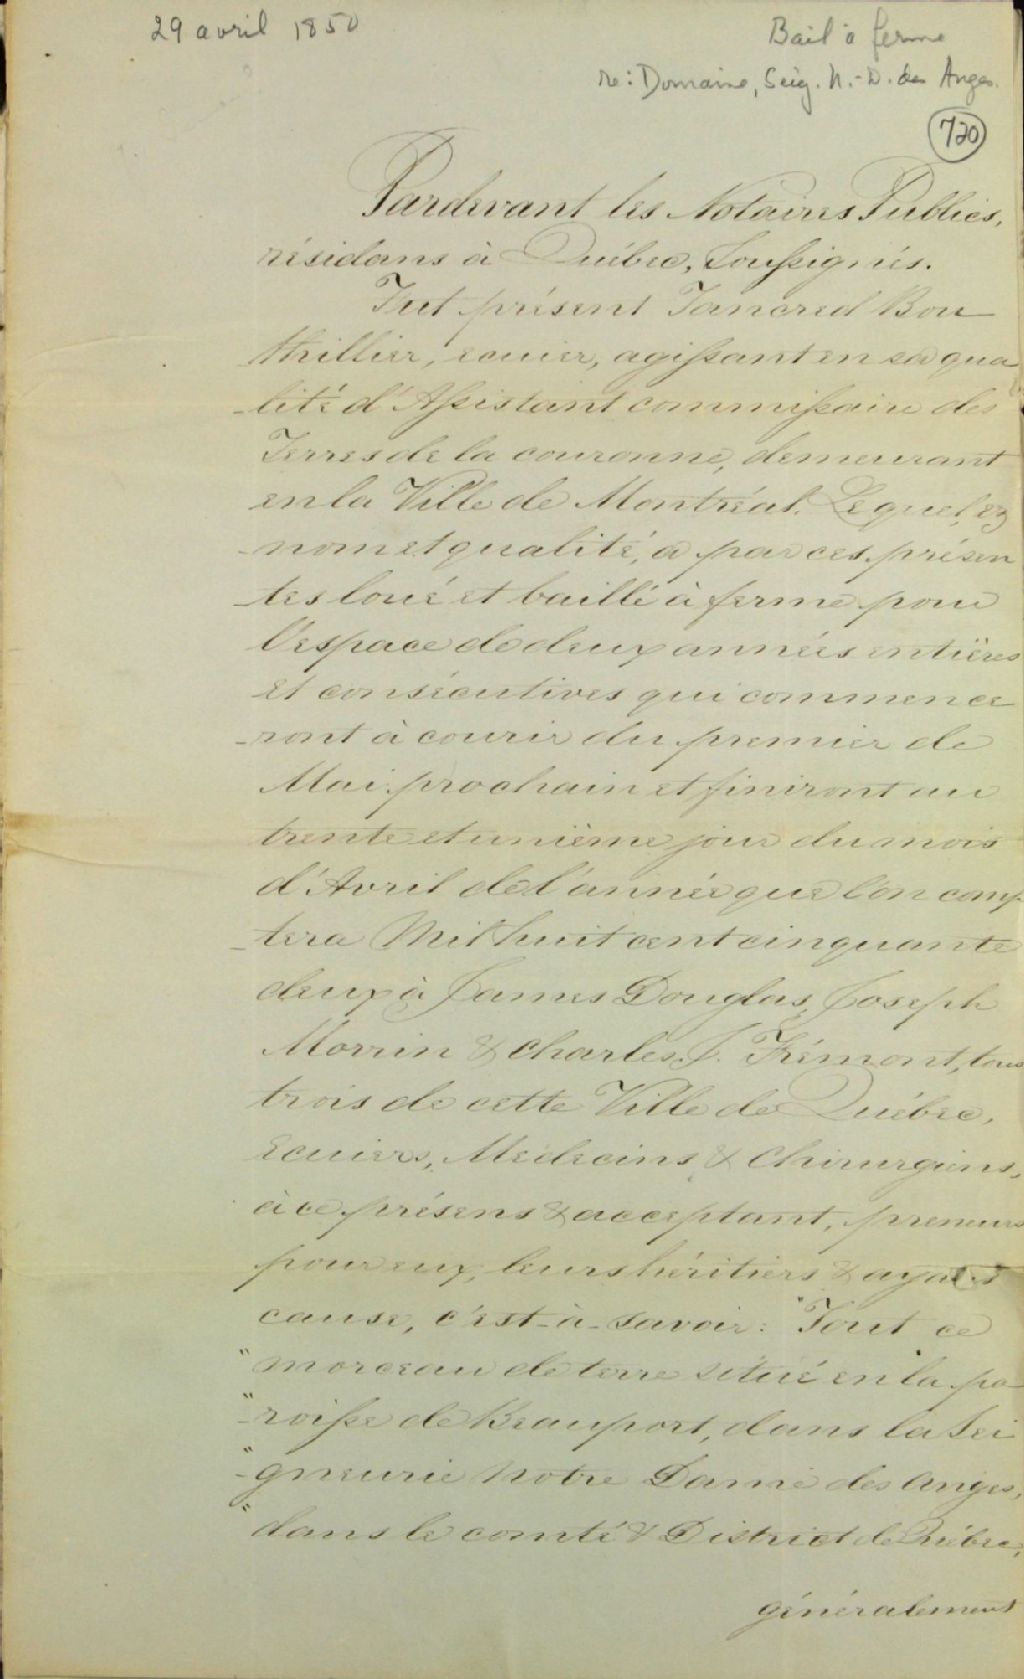 29 avril 1850
Bail à ferme
re: Domaine, Seig. N.-D. des Anges.
720
Pardevant les Notaires Publics,
résidans à Québec, Soussignés.
Fut présent Tancred Bou
thillier, ecuier, agissant en sa qua
-lité d'Assistant commissaire des
Terres de la couronne, demeurant
en la Ville de Montréal. Lequel, ez
-nom et qualité, a par ces présen
-tes loué et baillé à ferme pour
l'espace de deux années entières
et consécutives qui commence
-ront à courir du premier de
Mai prochain et finiront au
trente et unième jour du mois
d'Avril de l'année que l'on comp
-tera Mil huit cent cinquante
deux à James Douglas, Joseph
Morrin & Charles J. Frémont, tous
trois de cette Ville de Québec,
Ecuiers, Médecins & Chirurgiens,
à ce présens & acceptant, preneurs
pour eux, leurs héritiers & ayant
cause, c'est-à-savoir: "Tout ce
" morceau de terre situé en la pa
" -roisse de Beauport, dans la Sei
" -gneurie Notre Dame des Anges,
" dans le comté & District de Québec,
généralement